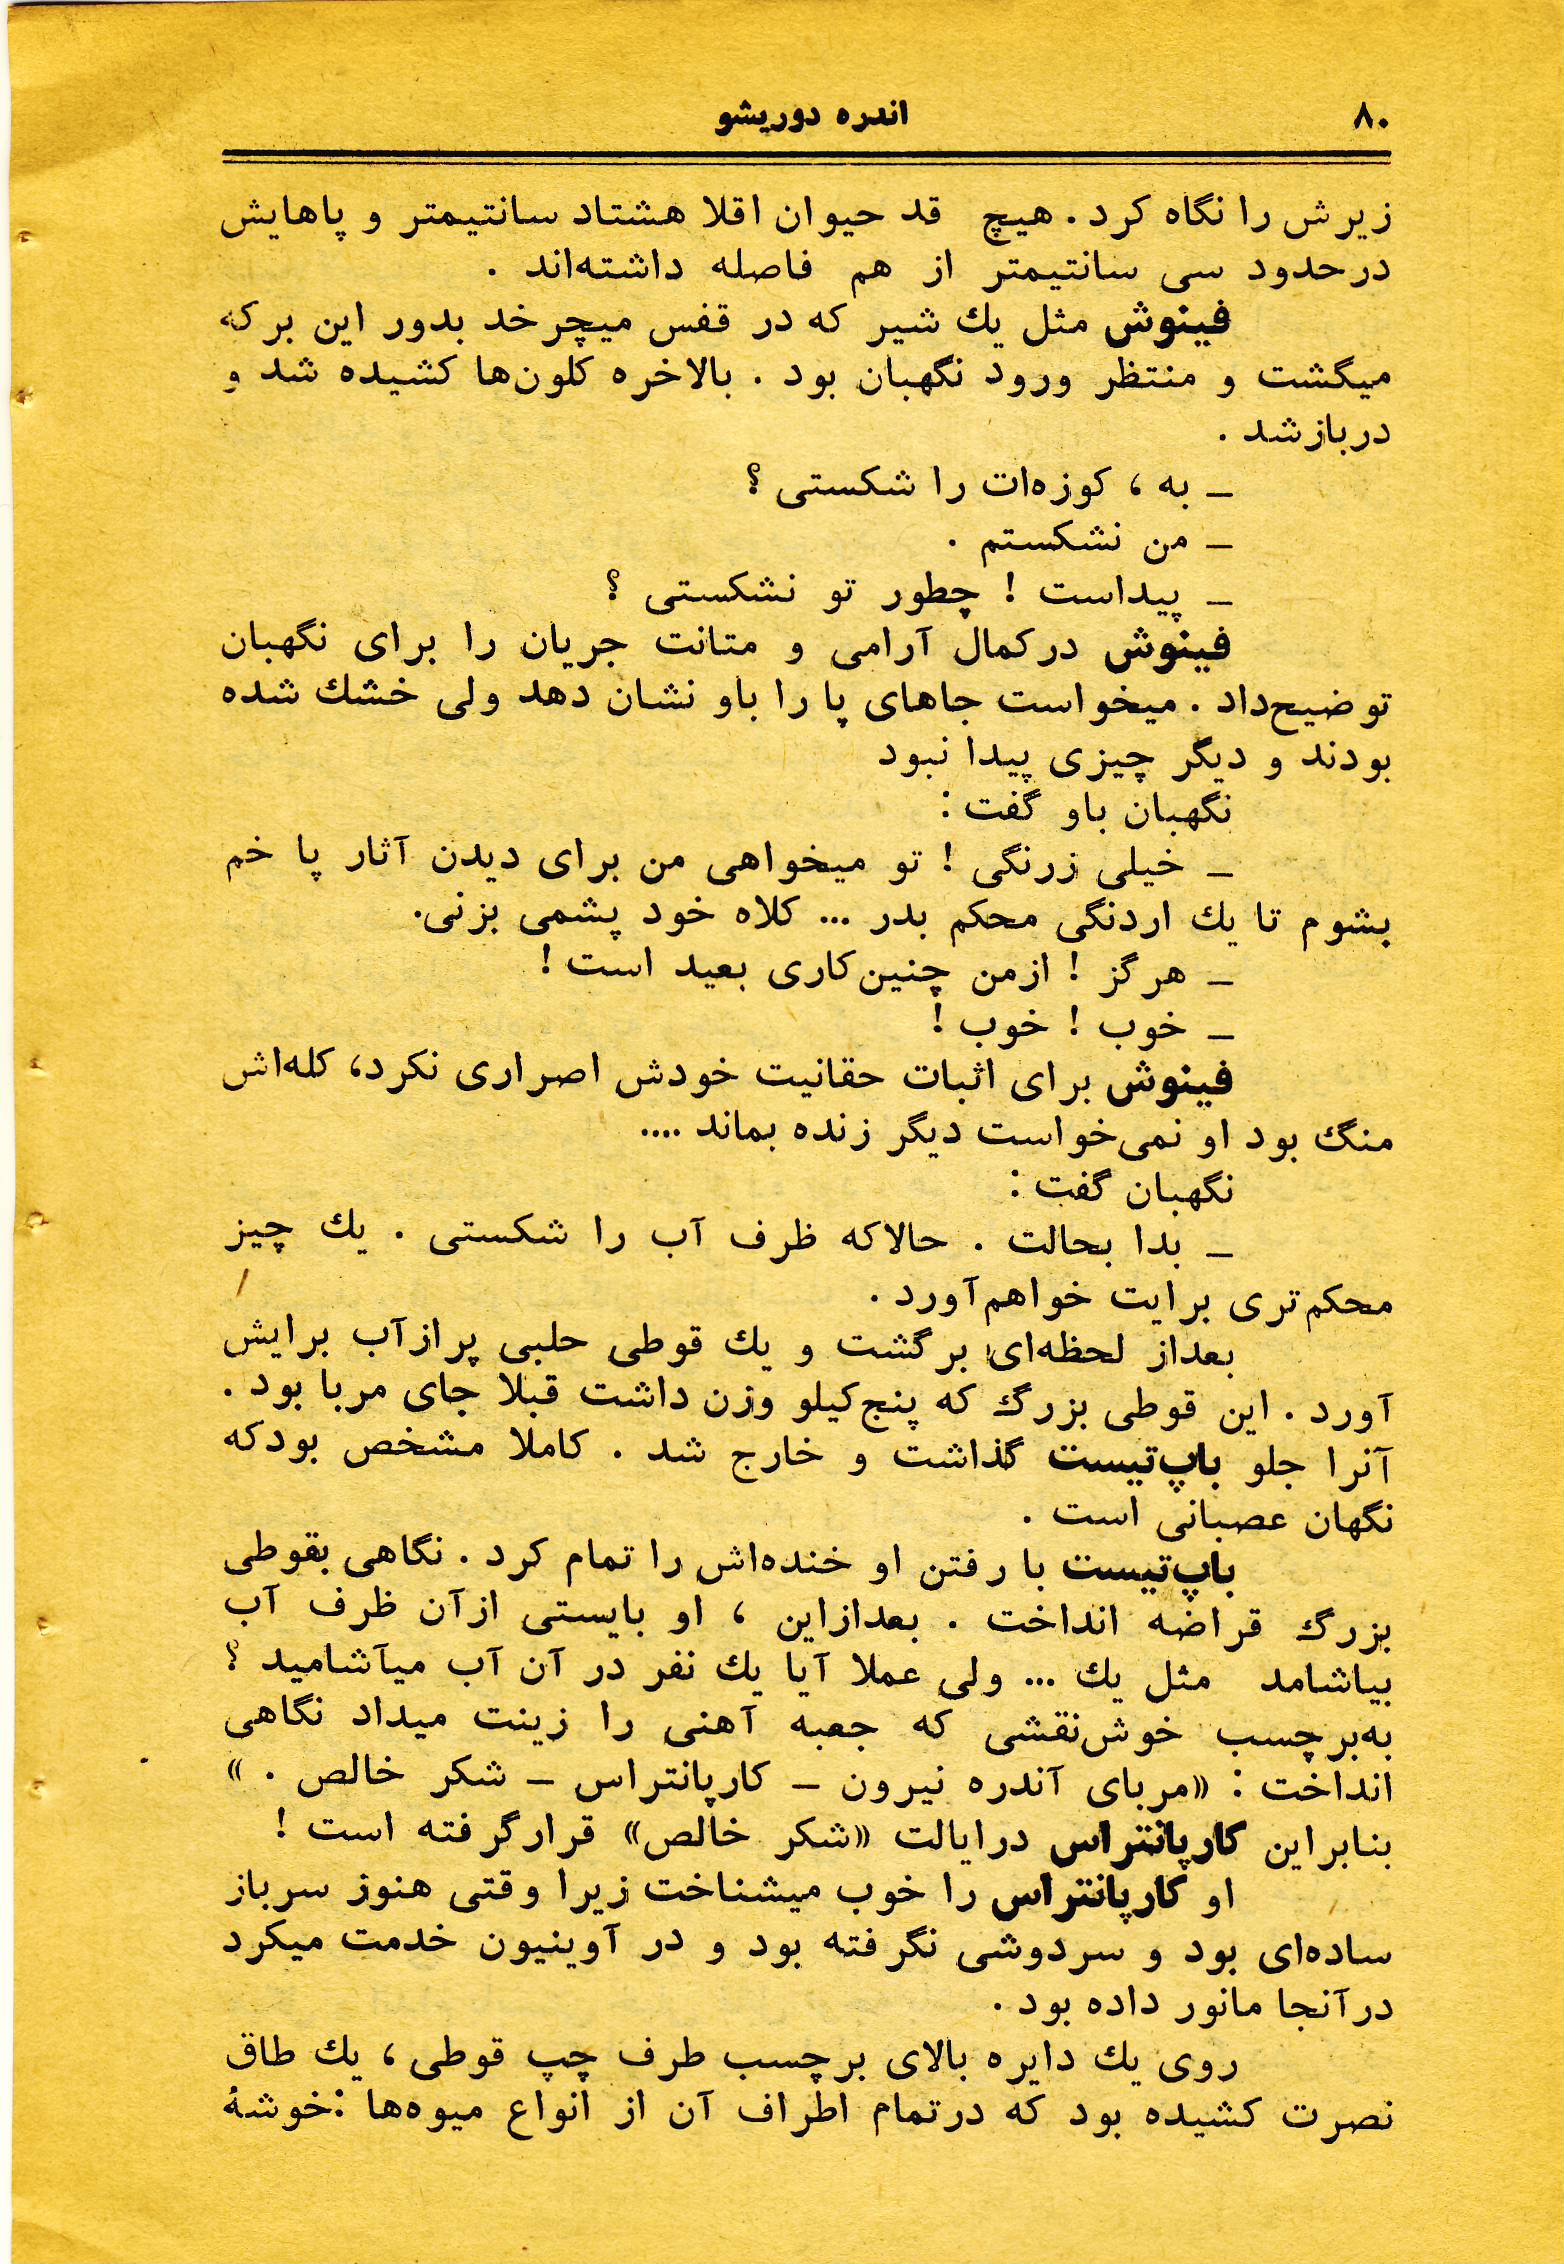 ۸۰
اندره دوریشو
زیرش را نگاه کرد . هیچ قد حیوان اقلا هشتاد سانتیمتر و پاهایش
درحدود سی سانتیمتر از هم فاصله داشته‌اند .
فینوش مثل یك شیر که در قفس میچرخد بدور این برکه
میگشت و منتظر ورود نگهبان بود . بالاخره کلون‌ها کشیده شد و
دربازشد .
ـ به ، کوزه‌ات را شکستی ؟
ـ من نشکستم .
ـ پیداست ! چطور تو نشکستی ؟
فینوش درکمال آرامی و متانت جریان را برای نگهبان
توضیح‌داد . میخواست جاهای پا را باو نشان دهد ولی خشك شده
بودند و دیگر چیزی پیدا نبود
نگهبان باو گفت :
ـ خیلی زرنگی ! تو میخواهی من برای دیدن آثار پا خم
بشوم تا یك اردنگی محکم بدر ... کلاه خود پشمی بزنی.
ـ هرگز ! ازمن چنین‌کاری بعید است !
ـ خوب ! خوب !
فینوش برای اثبات حقانیت خودش اصراری نکرد، کله‌اش
منگ بود او نمی‌خواست دیگر زنده بماند ....
نگهبان گفت :
ـ بدا بحالت . حالاکه ظرف آب را شکستی . یك چیز
محکم‌تری برایت خواهم‌آورد .
بعداز لحظه‌ای برگشت و یك قوطی حلبی پرازآب برایش
آورد . این قوطی بزرگ که پنج‌کیلو وزن داشت قبلا جای مربا بود .
آنرا جلو باپ‌تیست گذاشت و خارج شد . کاملا مشخص بودکه
نگهان عصبانی است .
باپ‌تیست با رفتن او خنده‌اش را تمام کرد . نگاهی بقوطی
بزرگ قراضه انداخت . بعدازاین ، او بایستی ازآن ظرف آب
بیاشامد مثل یك ... ولی عملا آیا یك نفر در آن آب میآشامید ؟
به‌برچسب خوش‌نقشی که جعبه آهنی را زینت میداد نگاهی
انداخت : «مربای آندره نیرون ـ کارپانتراس ـ شکر خالص . »
بنابراین کارپانتراس درایالت «شکر خالص» قرارگرفته است !
او کارپانتراس را خوب میشناخت زیرا وقتی هنوز سرباز
ساده‌ای بود و سردوشی نگرفته بود و در آوینیون خدمت میکرد
درآنجا مانور داده بود .
روی یك دایره بالای برچسب طرف چپ قوطی ، یك طاق
نصرت کشیده بود که درتمام اطراف آن از انواع میوه‌ها :خوشهٔ